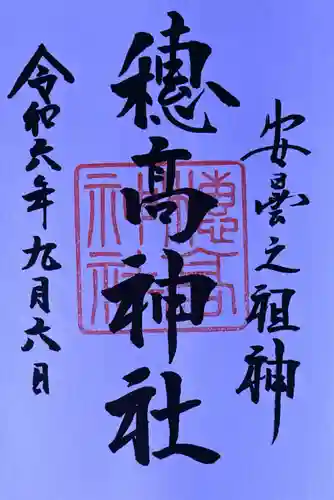 安曇之祖神
穗髙神社
令和六年九月六日
穗髙神社